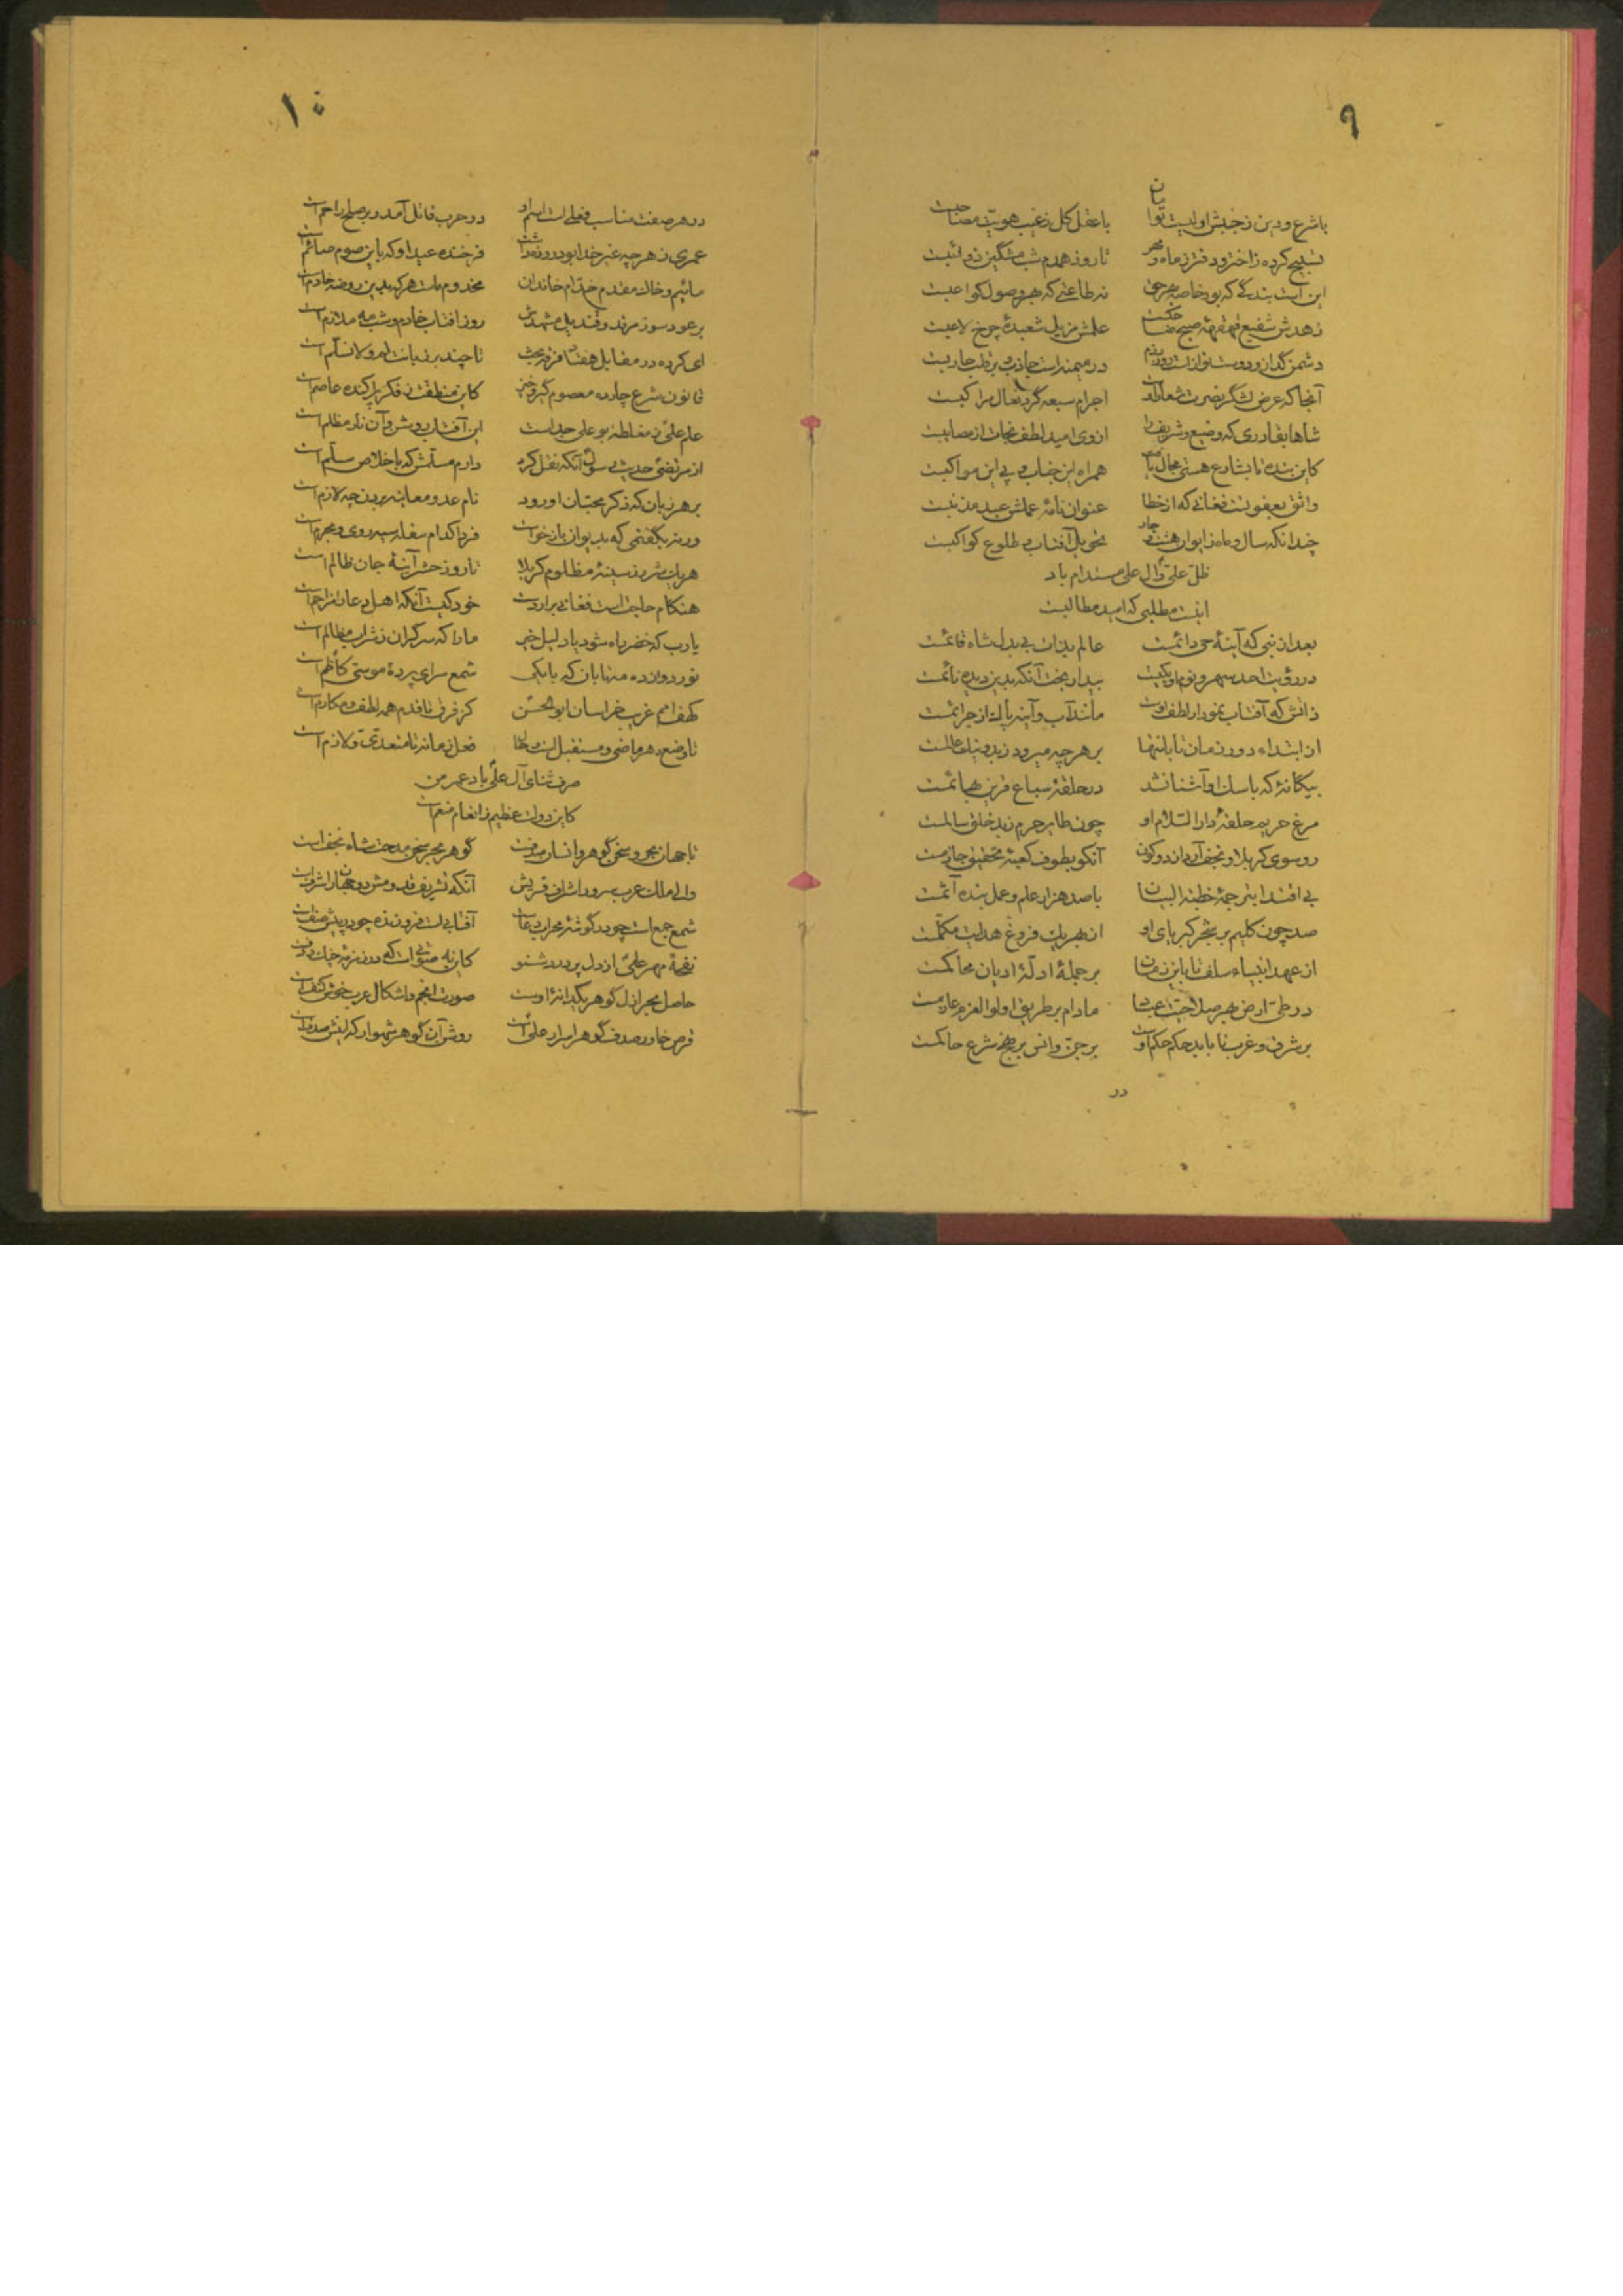 ۹
با شرع و دین ز جنبش اولیت توامان با عقل کل ز غیب هویت مصاحبت
تسبیح کرده ز اختر و دفتر ز ماه و مهر تا روز همدم شب مشگین ذوائبت
این است بندگی که بود خاصه بهر حق نه طاعتی که بهر وصول کواعبت
زهدش شفیع قهقههٔ صبح علمش مزیل شعبدهٔ چرخ لاعبت
دشمن گداز و دوست نواز است روز رزم در میمنه است جاذب و بر قلب
آنجا که عرض لشگر نصرت شعار اوست اجرام سبعه گرد نعال مراکبت
شاها بقادری که وضیع و شریف را از وی امید لطف و نجات از مصایبت
کاین بنده تا بشارع هستی مجال یافت همراه این جناب و پی این مواکبت
واثق بعفو تست فغانی که از خطا عنوان نامهٔ عملش عبد مذنبت
چندانکه سال و ماه ز ایوان هشت و چار تحویل آفتاب و طلوع کواکبت
ظل علی و آل علی مستدام باد
اینست مطلبی که امید مطالبت
بعد از نبی که آینهٔ حی دائمت عالم بذات بی بدل شاه قائمت
در رؤیت احد سپهر و نهم او یکیست بیدار بخت آنکه بدین دیده نائمت
ذاتش که آفتاب نمودار لطف اوست مانند آب و آینه پاک از جرائمت
از ابتداء دور زمان تا بانتها بر هر چه میرود ز بد و نیک عالمت
بیگانهٔ که با سگ او آشنا نشد در حلقهٔ سباع قرین بهائمت
مرغ حریم حلقهٔ دار السلام او چون طایر حرم ز بد خلق سالمت
رو سوی کربلا و نجف آرد از دو کون آنکو بطوف کعبهٔ تحقیق جازمت
بی اقتدا بترجمهٔ خطبة البیان با صد هزار علم و عمل بنده آثمت
صد چون کلیم بر شجر کبریای او از بهر یک فروغ هدایت مکلمت
از عهد انبیاء سلف تا باین زمان بر جملهٔ ادلهٔ ادیان محاکمت
در طی ارض بهر صلاحیت عباد مادام بر طریق اولوا العزم عازمت
بر شرق و غرب تا بابد حکم حکم اوست بر جن و انس بر نهج شرع حاکمت
در
۱۰
در هر صفت مناسب فعلی است اسم او در حرب قاتل آمد و بر صلح راحم است
عمری ز هر چه غیر خدا بود روزه داشت فرخنده عید او که باین صوم صائم است
مائیم و خاک مقدم خدام خاندان مخدوم ماست هر که بدین روضه خادم است
بر عود سوز مرقد و قندیل مشهدش روز آفتاب خادم و شب مه ملازم است
ای کرده در مقابل هفتاد فرقه بحث تا چند بر زبانت لم و لا نسلم است
قانون شرع چارده معصوم گیر و خیز کاین منطقت ز فکر پراکنده عاصم است
علم علی ز مغلطه بو علی جداست این آفتاب روشن و آن نار مظلم است
از مرتضی حدیث رسول آنکه نقل کرد دارم مسلمش که باخلاص مسلم است
بر هر زبان که ذکر محبان او رود نام عدو معاینه بردن چه لازم است
ور نه بگفتمی که بدیوان بازخواست فردا کدام سفله سیه روی و مجرم است
هر یک شرر ز سینهٔ مظلوم کربلا تا روز حشر آینهٔ جان ظالم است
هنگام حاجت است فغانی برار دست خود کیست آنکه اهل دعا را مزاحم است
یا رب که خضر راه شود یا دلیل خیر ما را که سر گران ز شراب مظالم است
نور دوازده مه تابان که با یکی شمع سرای پردهٔ موسی کاظم است
کهف امم غریب خراسان ابو الحسن کز فرق تا قدم همه لطف و مکارم است
تا وضع دهر ماضی و مستقبل است و حال فعل زمانه تا متعدی و لازم است
صرف ثنای آل علی باد عمر من
کاین دولت عظیم ز انعام منعم است
تا جهان بحر و سخن گوهر و انسان صدفست گوهر بحر سخن مدحت شاه نجف است
والی ملک عرب سرور اشراف قریش آنکه تشریف قدومش دو جهان را شرف است
شمع جمع است چو در گوشهٔ محراب دعاست آفتابیست فروزنده چو در پیش صف است
نغمهٔ مهر علی از دل پر درد شنو کاین نه صوتیست که در زمزمهٔ چنگ و دفست
حاصل بحر ازل گوهر یکدانهٔ اوست صورت انجم و اشکال عرب خوش کف است
قرص خاور صدف گوهر اسرار علی است روشن آن گوهر شهوار که اینش صدف است